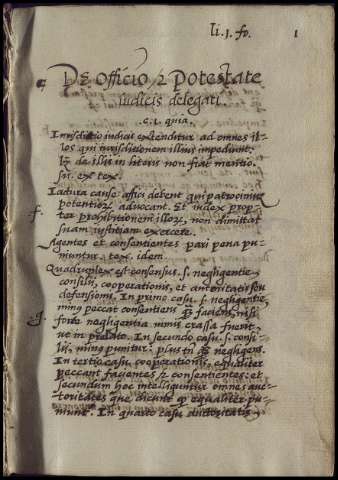 li. 1. fo. 1
De officio & potestate
iudicis delegati.
c. 1. quia.
Iurisdictio iudicis extenditur ad omnes il-
los qui iurisdictionem illius impediunt:
lz de illis in literis non fiat mentio.
sic. ex tex.
Iactura causae affici debent qui patrocinium
potentiorum advocant. Et iudex prop-
ter prohibitionem illorum, non dimittat
suam iustitiam exercere.
f. Agentes et consentientes pari pena pu-
niuntur. tex. idem.
Quadruplex est consensus. s. negligentie,
consilii, cooperationis, et autoritatis seu
defensionis. In primo casu. s. negligentie,
minus peccat consentiens quam faciens, nisi
g. forte negligentia nimis crassa fuerit
ut in prelato. In secundo casu. s. consi-
lii, minus punitur: plus tamen quam negligens.
In tertio casu, cooperationis, equaliter
peccant facientes & consentientes: et
secundum hoc intelliguntur omnes auc-
toritates que dicunt quod equaliter pu-
niunt. In quarto casu auctoritatis